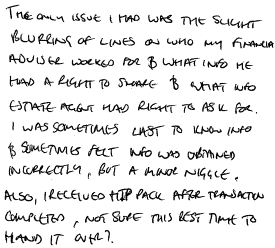 THE ONLY ISSUE I HAD WAS THE SLIGHT
BLURRING OF LINES ON WHO MY FINANCIAL
ADVISER WORKED FOR & WHAT INFO HE
HAD A RIGHT TO SHARE & WHAT INFO
ESTATE AGENT HAD RIGHT TO ASK FOR.
I WAS SOMETIMES LAST TO KNOW INFO
& SOMETIMES FELT INFO WAS OBTAINED
INCORRECTLY, BUT A MINOR NIGGLE.
ALSO, I RECEIVED HIP PACK AFTER TRANSACTION
COMPLETED, NOT SURE THIS BEST TIME TO
HAND IT OVER?